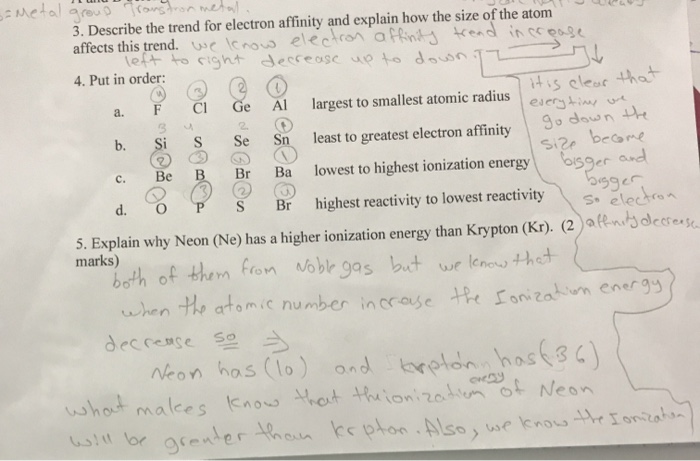 = Metal group Transtron metal.
3. Describe the trend for electron affinity and explain how the size of the atom
affects this trend. we know electron affinity trend increase
left to right decrease up to down.
4. Put in order:
4 3 2 1
a. F Cl Ge Al largest to smallest atomic radius
3 4 2 1
b. Si S Se Sn least to greatest electron affinity
2 3 4 1
c. Be B Br Ba lowest to highest ionization energy
3 2
d. O P S Br highest reactivity to lowest reactivity
it is clear that
everytime we
go down the
size become
bigger and
bigger
so electron
affinity decrease
5. Explain why Neon (Ne) has a higher ionization energy than Krypton (Kr). (2
marks)
both of them from Noble gas but we know that
when the atomic number increase the Ionization energy
decrease so ⇒
Neon has (10) and krptdn has (36)
energy
what makes know that the ionization of Neon
will be greater than krpton. Also, we know the Ionization